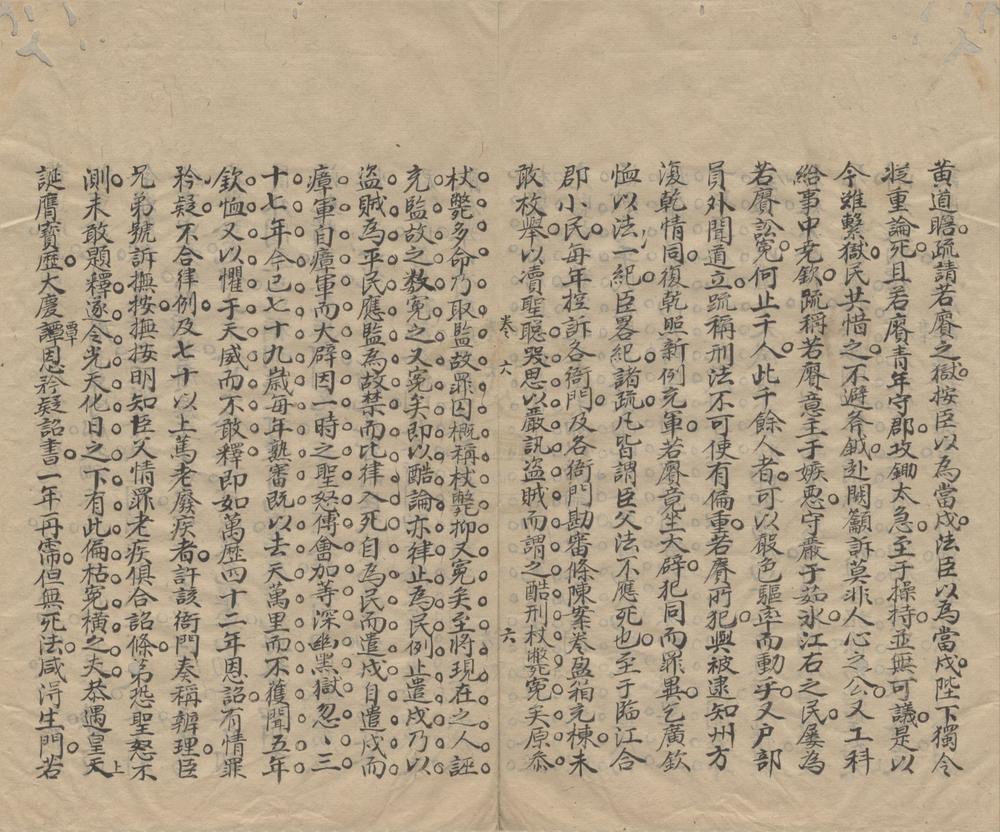 黄道瞻疏請若賡之獄按臣以為當戍法臣以為當戍陛下獨令
從重論死且若賡青年守郡攻鋤太急至于操持並無可議是以
今雖繫獄民共惜之不避斧鉞赴闕籲訴莫非人心之公又工科
給事中尤欽疏稱若賡意主于嫉惡守嚴于茹氷江右之民屡為
若賡訟寃何止千人此千餘人者可以嚴色驅率而動乎又戸部
員外聞道立疏稱刑法不可使有偏重若賡所犯與被逮知州方
復乾情同復乾照新例充軍若賡竟坐大辟犯同而罪異乞廣欽
恤以法一紀臣畧紀諸疏凡皆謂臣父法不應死也至于臨江合
郡小民每年控訴各衙門及各衙門勘審條陳案巻盈箱充棟未
敢枚舉以凟聖聪哭思以嚴訊盗賊而謂之酷刑杖斃寃矣原叅
卷六
六
杖斃多命乃取監故罪囚概稱杖斃抑又寃矣至將現在之人誣
充監故之数寃之又寃矣即以酷論亦律止為民例止遣戍乃以
盗賊為平民應監為故禁而比律入死自為民而遣戍自遣戍而
瘴軍自瘴軍而大辟因一時之聖怒傅會加等深幽黑獄忽、三
十七年今已七十九歲每年熟審既以去天萬里而不獲聞五年
欽恤又以懼于天威而不敢釋即如萬歷四十二年恩詔有情罪
矜疑不合律例及七十以上篤老廢疾者許該衙門奏稱辨理臣
兄弟號訴撫按撫按明知臣父情罪老疾俱合詔條第恐聖怒不
測未敢題釋遂令光天化日之下有此偏枯寃橫之夫恭遇皇天
上
誕膺寳歷大慶譚恩矜疑詔書一年再霈但無死法咸淂生門若
覃